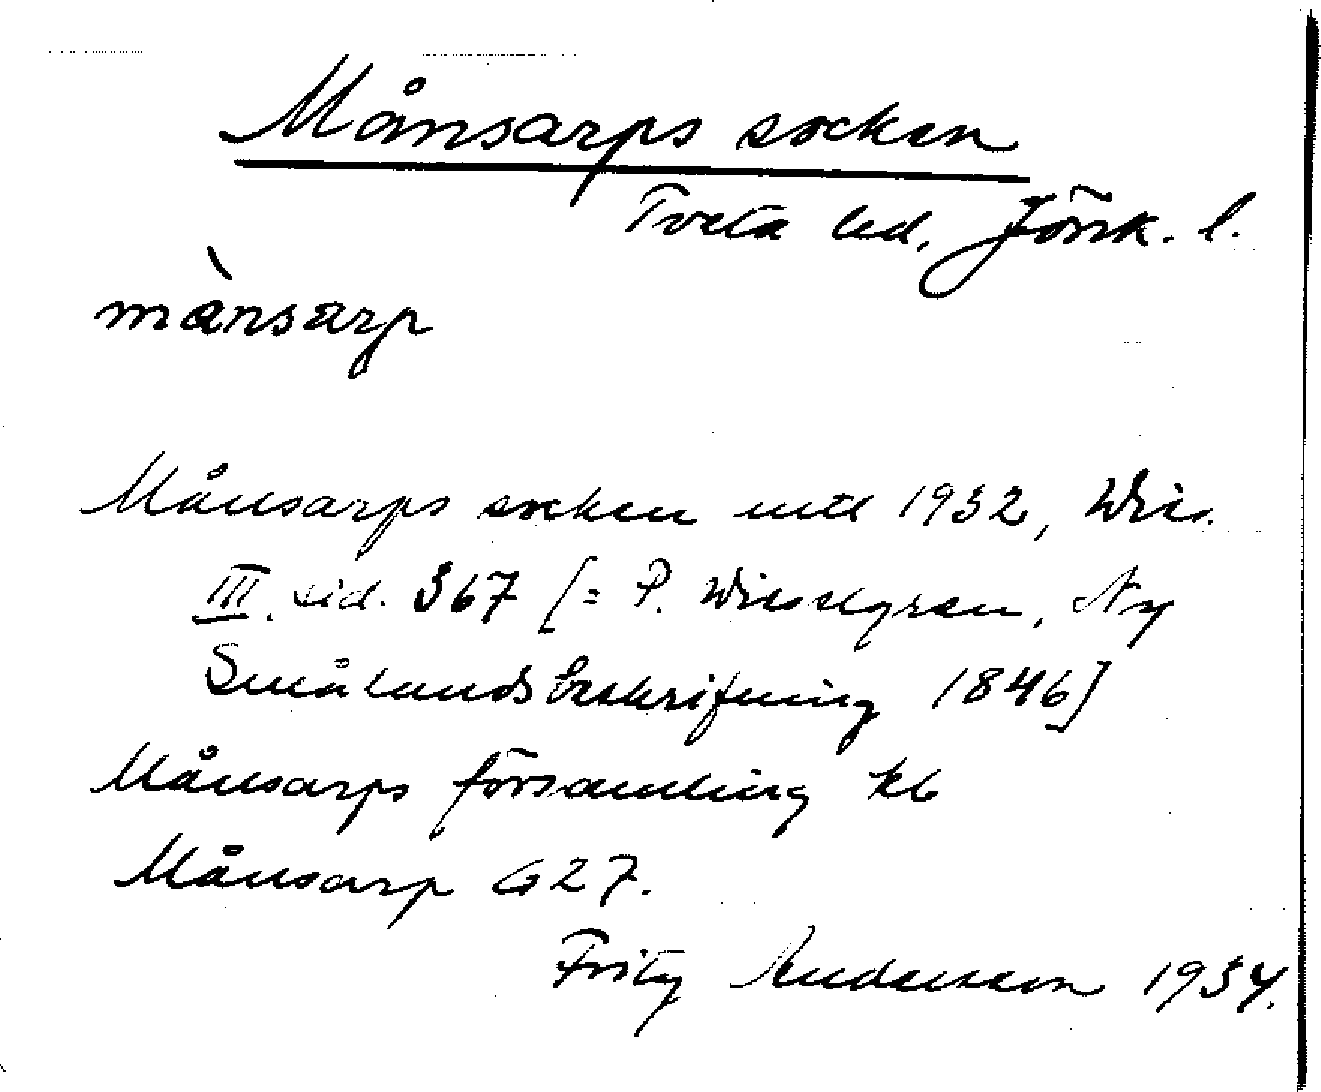 Månsarps socken
Tveta hd, Jönk. l.
mànsarp
Månsarps socken mtl 1932, Wies.
III. sid. 367 [= P. Wieselgren, Ny
Smålandsbeskrifning 1846]
Månsarps församling kb
Månsarp G 27.
Fritz Andersson 1934.